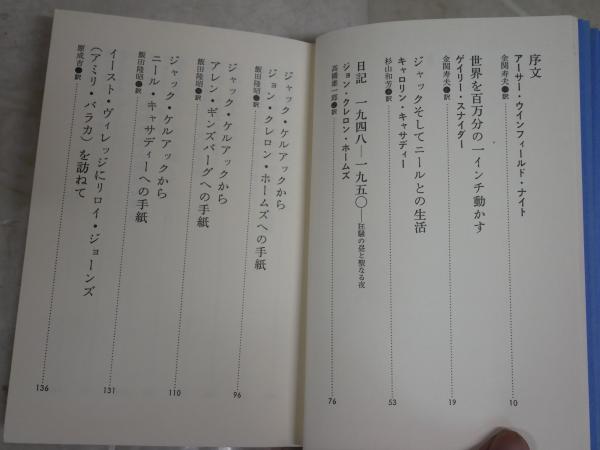 序文
アーサー・ウインフィールド・ナイト
金関寿夫●訳
10
世界を百万分の一インチ動かす
ゲイリー・スナイダー
金関寿夫●訳
19
ジャックそしてニールとの生活
キャロリン・キャサディー
杉山和芳●訳
53
日記 一九四八―一九五〇―狂騒の昼と聖なる夜
ジョン・クレロン・ホームズ
高橋雄一郎●訳
76
ジャック・ケルアックから
ジョン・クレロン・ホームズへの手紙
飯田隆昭●訳
96
ジャック・ケルアックから
アレン・ギンズバーグへの手紙
飯田隆昭●訳
110
ジャック・ケルアックから
ニール・キャサディーへの手紙
飯田隆昭●訳
131
イースト・ヴィレッジにリロイ・ジョーンズ
（アミリ・バラカ）を訪ねて
原成吉●訳
136